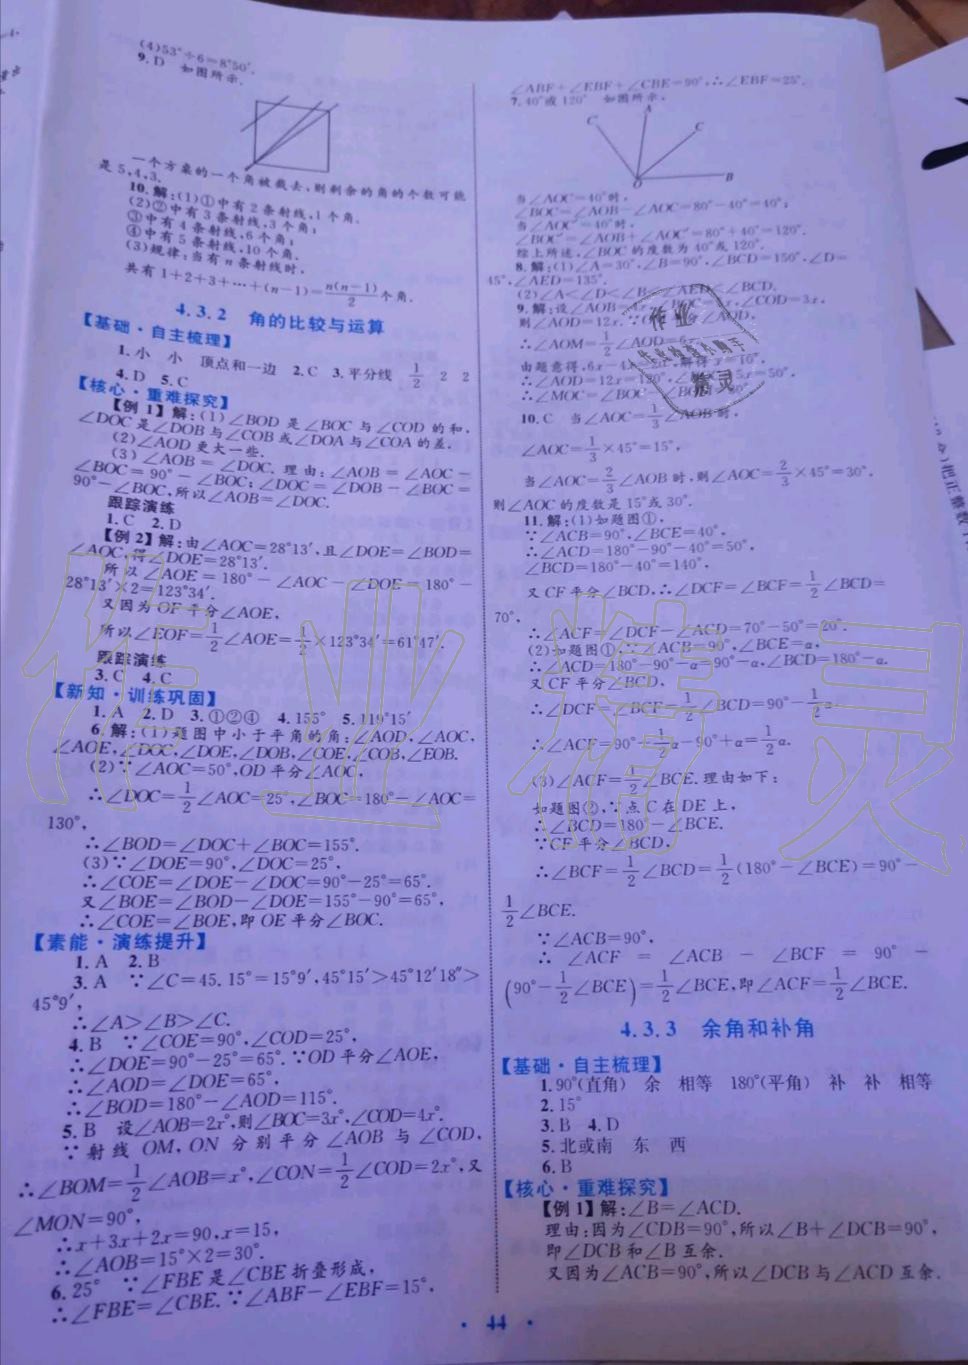 (4)53°÷6=8°50′.
9.D 如图所示.
一个方桌的一个角被截去,则剩余的角的个数可能
是5,4,3.
10.解:(1)①中有2条射线,1个角.
(2)②中有3条射线,3个角;
③中有4条射线,6个角;
④中有5条射线,10个角.
(3)规律:当有n条射线时,
共有1+2+3+…+(n-1)=n(n-1)/2个角.
4.3.2 角的比较与运算
【基础·自主梳理】
1.小 小 顶点和一边 2.C 3.平分线 1/2 2 2
4.D 5.C
【核心·重难探究】
【例1】解:(1)∠BOD是∠BOC与∠COD的和,
∠DOC是∠DOB与∠COB或∠DOA与∠COA的差.
(2)∠AOD更大一些.
(3)∠AOB=∠DOC.理由:∠AOB=∠AOC-
∠BOC=90°-∠BOC;∠DOC=∠DOB-∠BOC=
90°-∠BOC,所以∠AOB=∠DOC.
跟踪演练
1.C 2.D
【例2】解:由∠AOC=28°13′,且∠DOE=∠BOD=
∠AOC,得∠DOE=28°13′.
所以∠AOE=180°-∠AOC-∠DOE=180°-
28°13′×2=123°34′.
又因为OF平分∠AOE,
所以∠EOF=1/2∠AOE=1/2×123°34′=61°47′.
跟踪演练
3.C 4.C
【新知·训练巩固】
1.A 2.D 3.①②④ 4.155° 5.119°15′
6.解:(1)题图中小于平角的角:∠AOD,∠AOC,
∠AOE,∠DOC,∠DOE,∠DOB,∠COE,∠COB,∠EOB.
(2)∵∠AOC=50°,OD平分∠AOC,
∴∠DOC=1/2∠AOC=25°,∠BOC=180°-∠AOC=
130°,
∴∠BOD=∠DOC+∠BOC=155°.
(3)∵∠DOE=90°,∠DOC=25°,
∴∠COE=∠DOE-∠DOC=90°-25°=65°.
又∠BOE=∠BOD-∠DOE=155°-90°=65°,
∴∠COE=∠BOE,即OE平分∠BOC.
【素能·演练提升】
1.A 2.B
3.A ∵∠C=45.15°=15°9′,45°15′>45°12′18″>
45°9′,
∴∠A>∠B>∠C.
4.B ∵∠COE=90°,∠COD=25°,
∴∠DOE=90°-25°=65°.∵OD平分∠AOE,
∴∠AOD=∠DOE=65°,
∴∠BOD=180°-∠AOD=115°.
5.B 设∠AOB=2x°,则∠BOC=3x°,∠COD=4x°.
∵射线OM,ON分别平分∠AOB与∠COD,
∴∠BOM=1/2∠AOB=x°,∠CON=1/2∠COD=2x°,又
∠MON=90°,
∴x+3x+2x=90,x=15,
∴∠AOB=15°×2=30°.
6.25° ∵∠FBE是∠CBE折叠形成,
∴∠FBE=∠CBE.∵∠ABF-∠EBF=15°.
∠ABF+∠EBF+∠CBE=90°,∴∠EBF=25°.
7.40°或120° 如图所示,
C′ A C O B
当∠AOC=40°时,
∠BOC=∠AOB-∠AOC=80°-40°=40°;
当∠AOC′=40°时,
∠BOC′=∠AOB+∠AOC′=80°+40°=120°.
综上所述,∠BOC的度数为40°或120°.
8.解:(1)∠A=30°,∠B=90°,∠BCD=150°,∠D=
45°,∠AED=135°.
(2)∠A<∠D<∠B<∠AED<∠BCD.
9.解:设∠AOB=4x,∠BOC=5x,∠COD=3x,
则∠AOD=12x.∵OM平分∠AOD,
∴∠AOM=1/2∠AOD=6x.
由题意得,6x-4x=20°,解得x=10°.
∴∠AOD=12x=120°,∠BOC=5x=50°.
∴∠MOC=∠BOC-∠BOM=
10.C 当∠AOC=1/3∠AOB时,
∠AOC=1/3×45°=15°,
当∠AOC=2/3∠AOB时,则∠AOC=2/3×45°=30°.
则∠AOC的度数是15°或30°.
11.解:(1)如题图①,
∵∠ACB=90°,∠BCE=40°,
∴∠ACD=180°-90°-40°=50°,
∠BCD=180°-40°=140°,
又CF平分∠BCD,∴∠DCF=∠BCF=1/2∠BCD=
70°,
∴∠ACF=∠DCF-∠ACD=70°-50°=20°.
(2)如题图①,∵∠ACB=90°,∠BCE=α,
∴∠ACD=180°-90°-α=90°-α,∠BCD=180°-α.
又CF平分∠BCD,
∴∠DCF=∠BCF=1/2∠BCD=90°-1/2α.
∴∠ACF=90°-1/2α-90°+α=1/2α.
(3)∠ACF=1/2∠BCE.理由如下:
如题图②,∵点C在DE上,
∴∠BCD=180°-∠BCE.
∵CF平分∠BCD,
∴∠BCF=1/2∠BCD=1/2(180°-∠BCE)=90°-
1/2∠BCE.
∵∠ACB=90°,
∴∠ACF=∠ACB-∠BCF=90°-
(90°-1/2∠BCE)=1/2∠BCE,即∠ACF=1/2∠BCE.
4.3.3 余角和补角
【基础·自主梳理】
1.90°(直角) 余 相等 180°(平角) 补 补 相等
2.15°
3.B 4.D
5.北或南 东 西
6.B
【核心·重难探究】
【例1】解:∠B=∠ACD.
理由:因为∠CDB=90°,所以∠B+∠DCB=90°,
即∠DCB和∠B互余.
又因为∠ACB=90°,所以∠DCB与∠ACD互余.
·44·
作业精灵